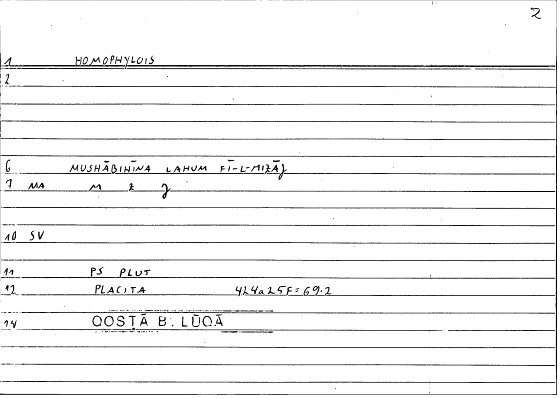 2
1 HOMOPHYLOIS
2
6 MUSHĀBIHĪNA LAHUM FĪ-L-MIZĀJ
7 MA M Z J
10 SV
11 PS PLUT
12 PLACITA 424a25F=69.2
14 QOSṬĀ B. LŪQĀ